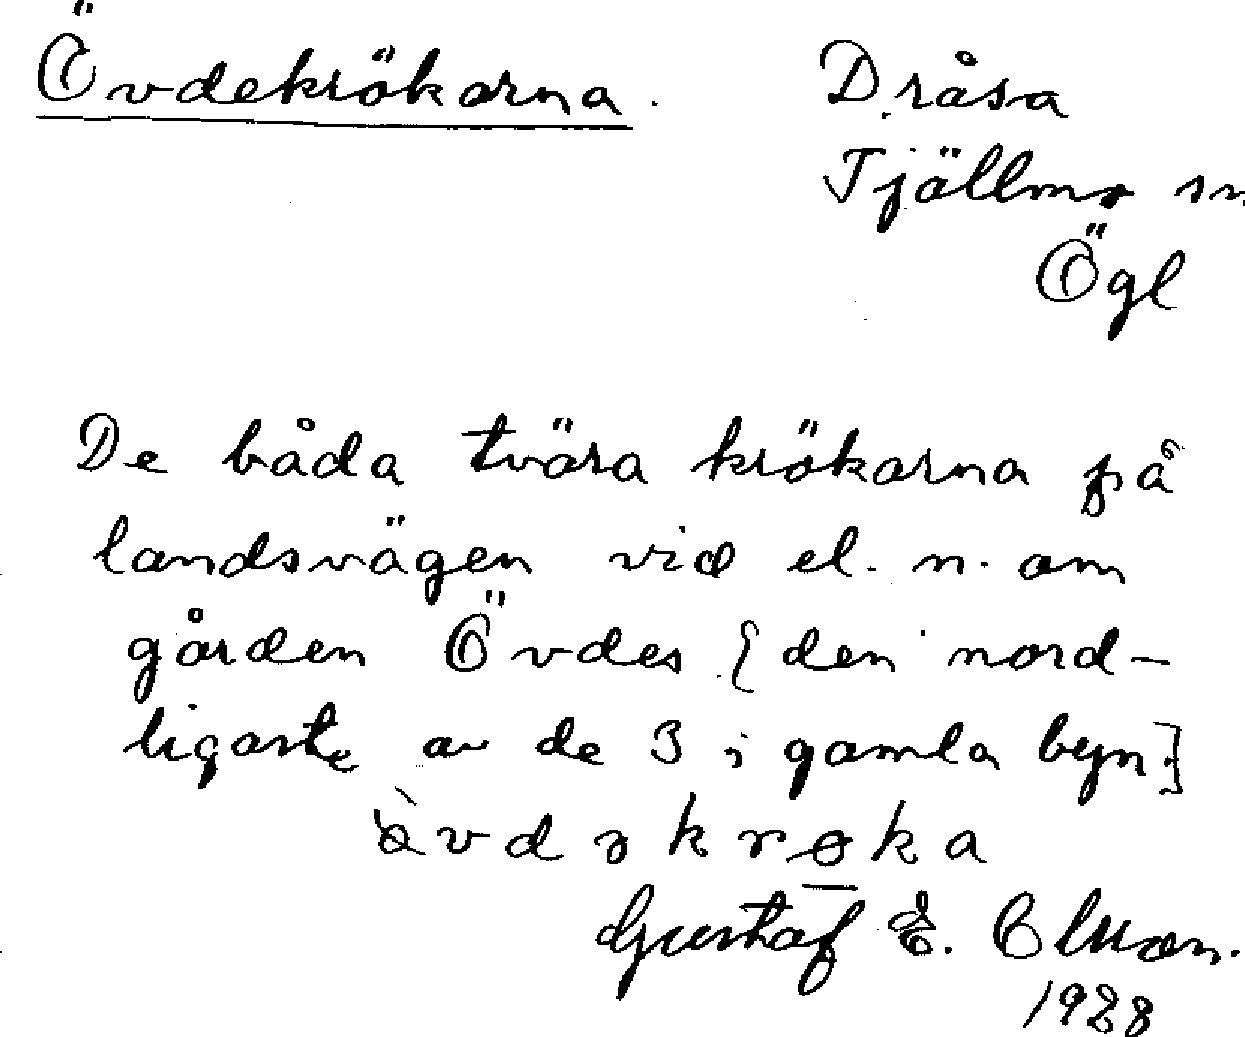 Övdekrökarna.
Dråsa
Tjällmo sn
Ögl
De båda tvära krökarna på
landsvägen vid el. n. om
gården Övdes [den nord-
ligaste av de 3 i gamla byn.]
Gustaf E.
1928